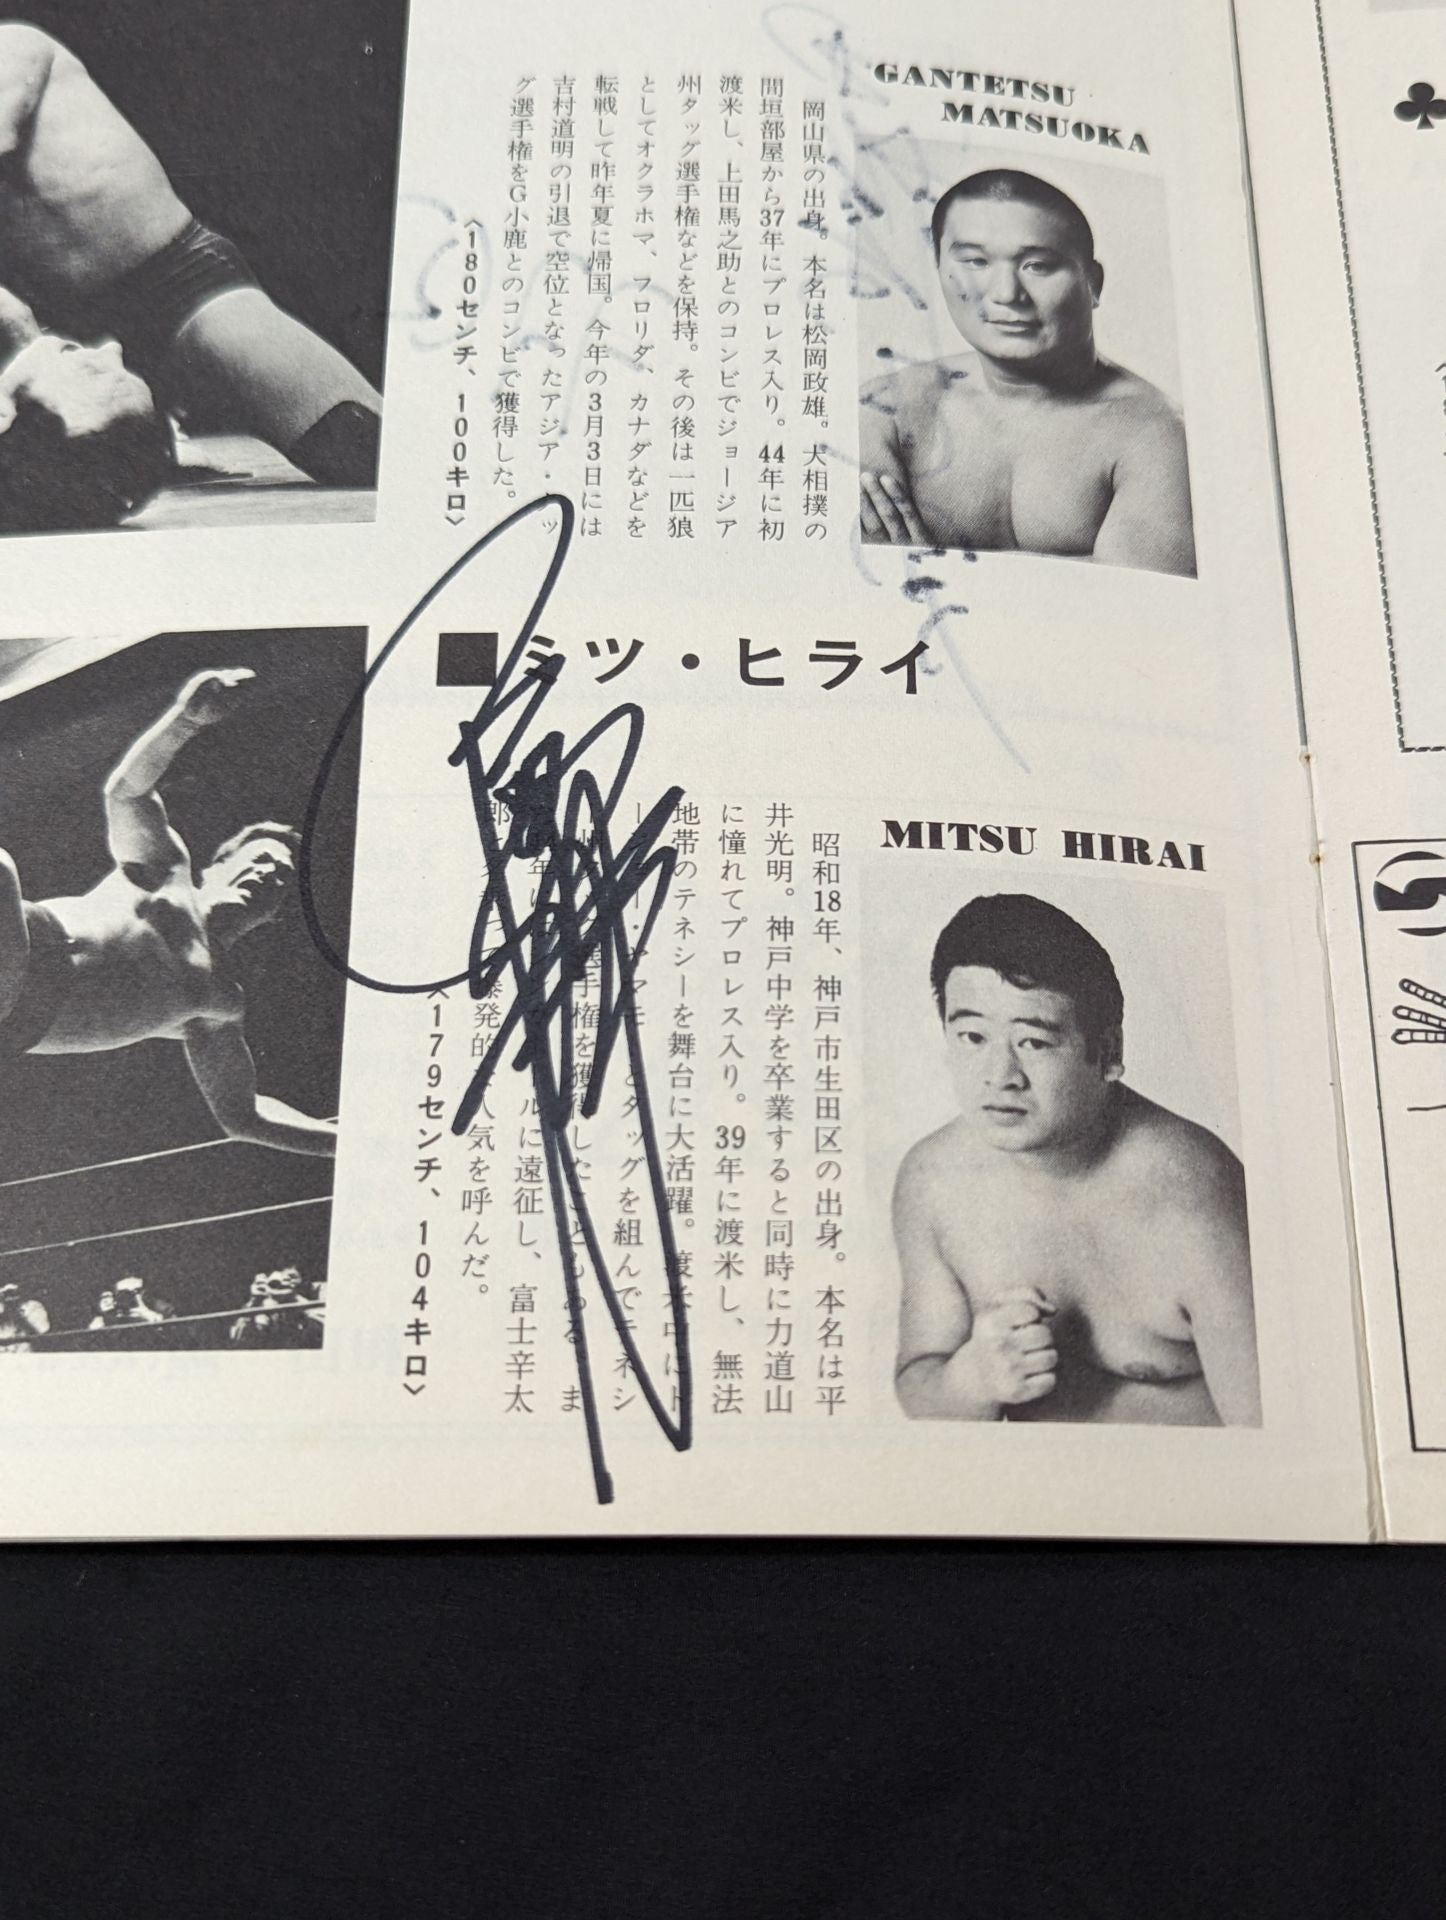 GANTETSU
MATSUOKA
岡山県の出身。本名は松岡政雄。大相撲の
間垣部屋から37年にプロレス入り。44年に初
渡米し、上田馬之助とのコンビでジョージア
州タッグ選手権などを保持。その後は一匹狼
としてオクラホマ、フロリダ、カナダなどを
転戦して昨年夏に帰国。今年の3月3日には
吉村道明の引退で空位となったアジア・タッ
グ選手権をG小鹿とのコンビで獲得した。
〈180センチ、100キロ〉
■ミツ・ヒライ
MITSU HIRAI
昭和18年、神戸市生田区の出身。本名は平
井光明。神戸中学を卒業すると同時に力道山
に憧れてプロレス入り。39年に渡米し、無法
地帯のテネシーを舞台に大活躍。渡米中にト
ヤマモ とタッグを組んでテネシ
ー州 選手権を獲得したこともある。ま
年に ルに遠征し、富士幸太
郎と 爆発的な人気を呼んだ。
〈179センチ、104キロ〉